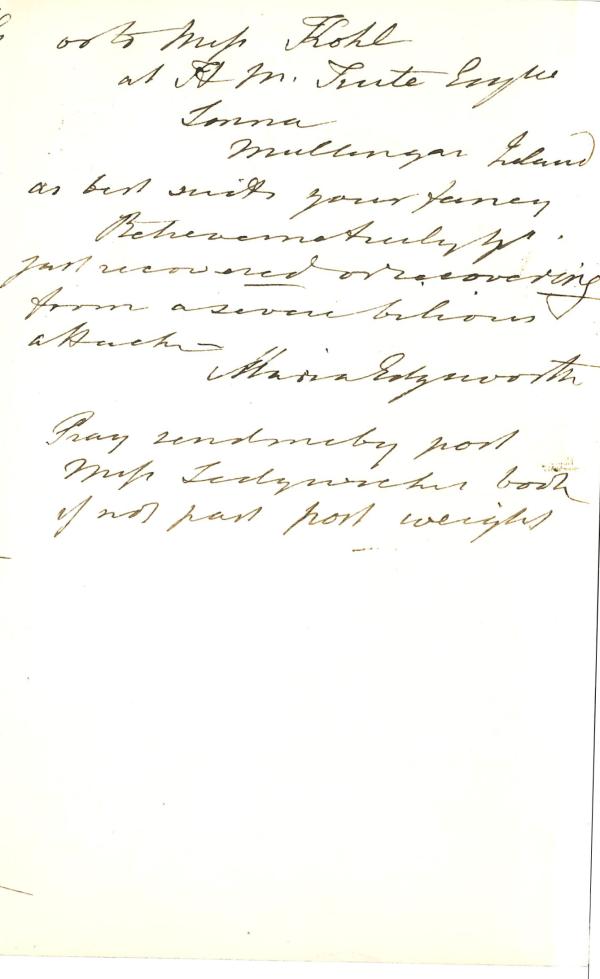 or to Miss Kohl
at H M. Tuite Esqre
Sonna
Mullingar Ireland
as best suits your fancy
Believe me truly yrs.
just recovered or recovering
from a severe bilious
attack—
Maria Edgeworth
Pray send me by post
Miss book
if not past post weight